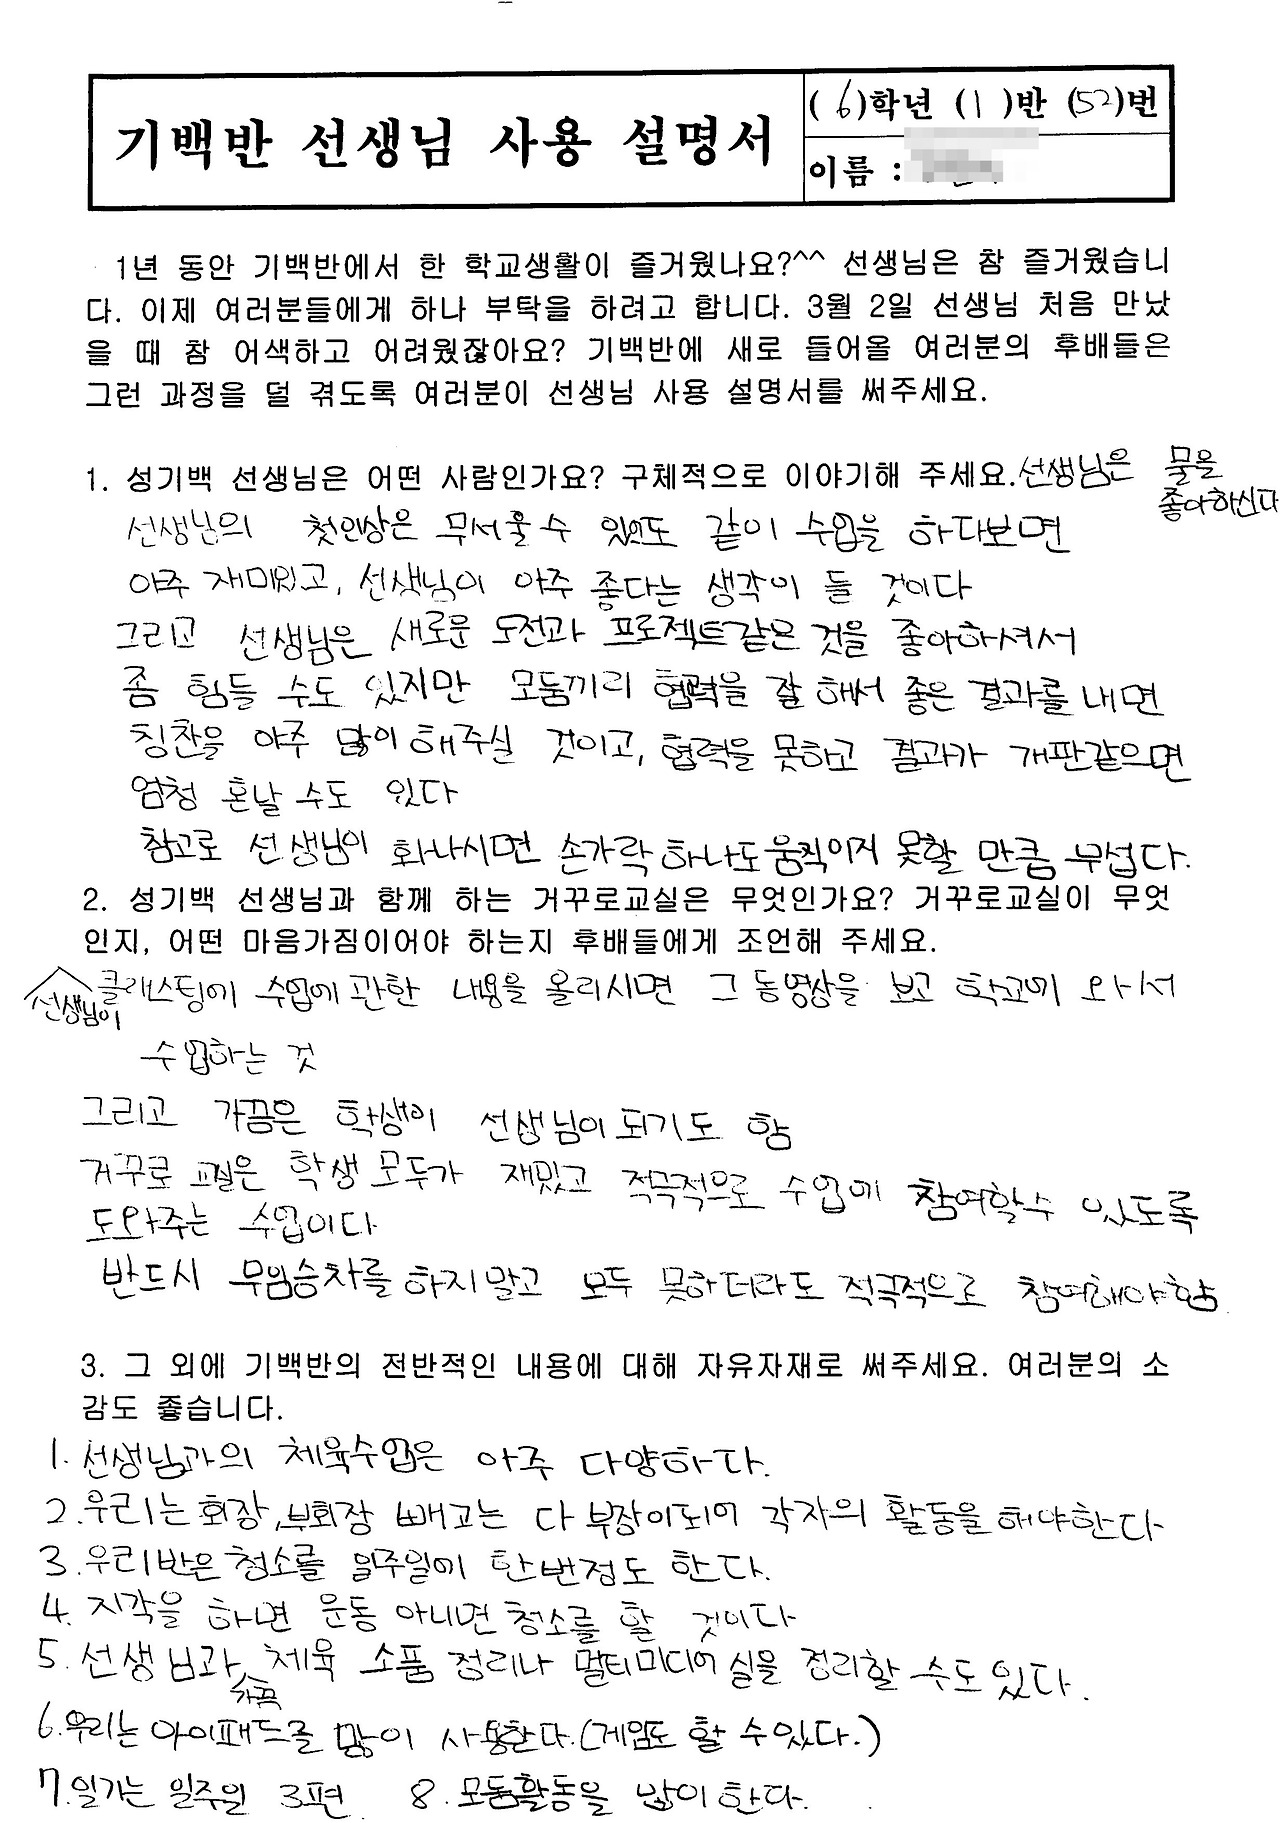 기백반 선생님 사용 설명서
(6)학년 (1)반 (52)번
이름 :
1년 동안 기백반에서 한 학교생활이 즐거웠나요?^^ 선생님은 참 즐거웠습니
다. 이제 여러분들에게 하나 부탁을 하려고 합니다. 3월 2일 선생님 처음 만났
을 때 참 어색하고 어려웠잖아요? 기백반에 새로 들어올 여러분의 후배들은
그런 과정을 덜 겪도록 여러분이 선생님 사용 설명서를 써주세요.
1. 성기백 선생님은 어떤 사람인가요? 구체적으로 이야기해 주세요. 선생님은 물을
좋아하신다
선생님의 첫인상은 무서울 수 있어도 같이 수업을 하다보면
아주 재미있고, 선생님이 아주 좋다는 생각이 들 것이다
그리고 선생님은 새로운 도전과 프로젝트같은 것을 좋아하셔서
좀 힘들 수도 있지만 모둠끼리 협력을 잘 해서 좋은 결과를 내면
칭찬을 아주 많이 해주실 것이고, 협력을 못하고 결과가 개판같으면
엄청 혼날 수도 있다
참고로 선생님이 화나시면 손가락 하나도 움직이지 못할 만큼 무섭다.
2. 성기백 선생님과 함께 하는 거꾸로교실은 무엇인가요? 거꾸로교실이 무엇
인지, 어떤 마음가짐이어야 하는지 후배들에게 조언해 주세요.
선생님이 클래스팅에 수업에 관한 내용을 올리시면 그 동영상을 보고 학교에 와서
수업하는 것
그리고 가끔은 학생이 선생님이 되기도 함
거꾸로 교실은 학생 모두가 재밌고 적극적으로 수업에 참여할수 있도록
도와주는 수업이다
반드시 무임승차를 하지말고 모두 못하더라도 적극적으로 참여해야함
3. 그 외에 기백반의 전반적인 내용에 대해 자유자재로 써주세요. 여러분의 소
감도 좋습니다.
1. 선생님과의 체육수업은 아주 다양하다.
2. 우리는 회장, 부회장 빼고는 다 부장이되어 각자의 활동을 해야한다
3. 우리반은 청소를 일주일에 한번정도 한다.
4. 지각을 하면 운동 아니면 청소를 할 것이다
5. 선생님과 가끔 체육 소품 정리나 멀티미디어 실을 정리할 수도있다.
6. 우리는 아이패드를 많이 사용한다.(게임도 할 수있다.)
7. 일기는 일주일 3편 8. 모둠활동을 많이 한다.